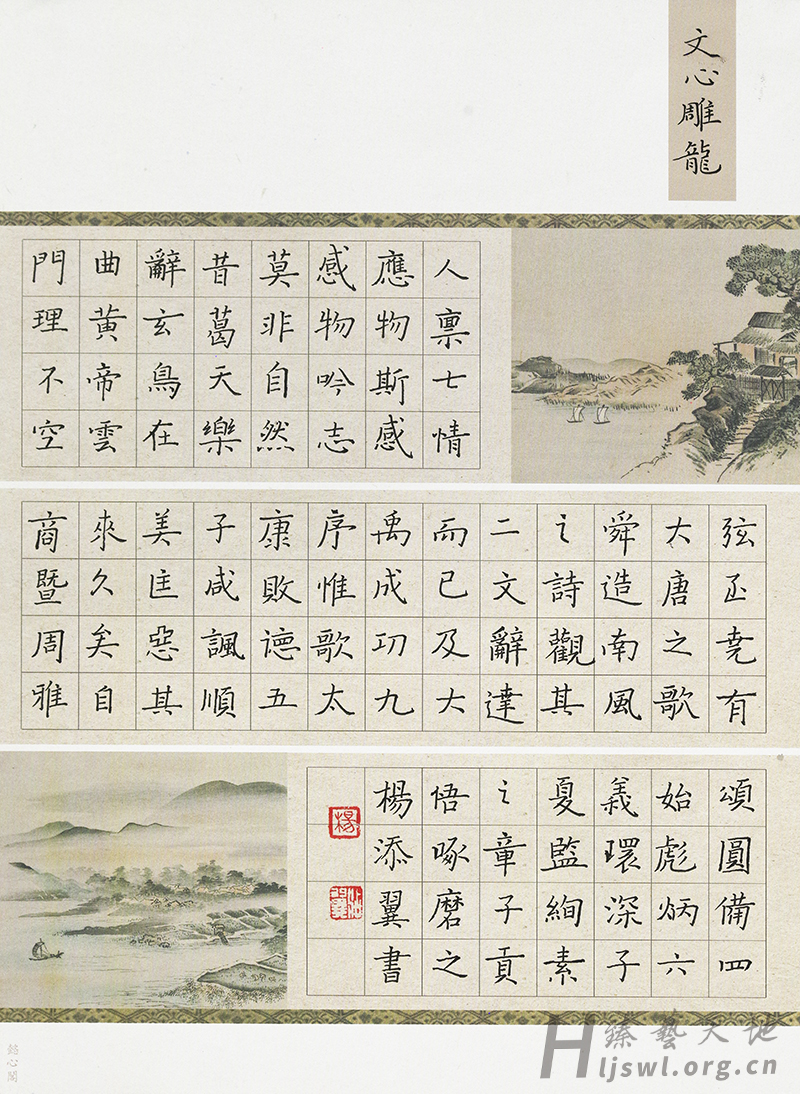 文心雕龍
人稟七情
應物斯感
感物吟志
莫非自然
昔葛天樂
辭玄鳥在
曲黄帝雲
門理不空
弦至堯有
大唐之歌
舜造南風
之詩觀其
二文辭達
而已及大
禹成功九
序惟歌太
康敗德五
子咸諷順
美匡惡其
來久矣自
商暨周雅
頌圓備四
始彪炳六
義環深子
夏監絢素
之章子貢
悟啄磨之
楊添翼書
楊
添翼
心閣
臻藝大地
Hljswl.org.cn